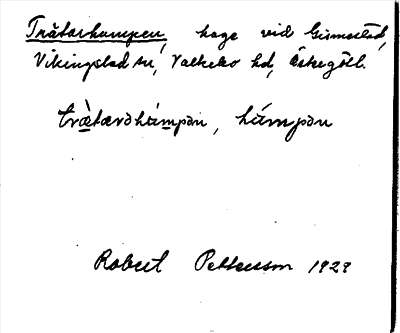 Trätarhumpen, hage vid Gismestad,
Vikingstad sn, Valkebo hd, Östergötl.
trä̀tarəhùmpən, hùmpən
Robert Pettersson 1929